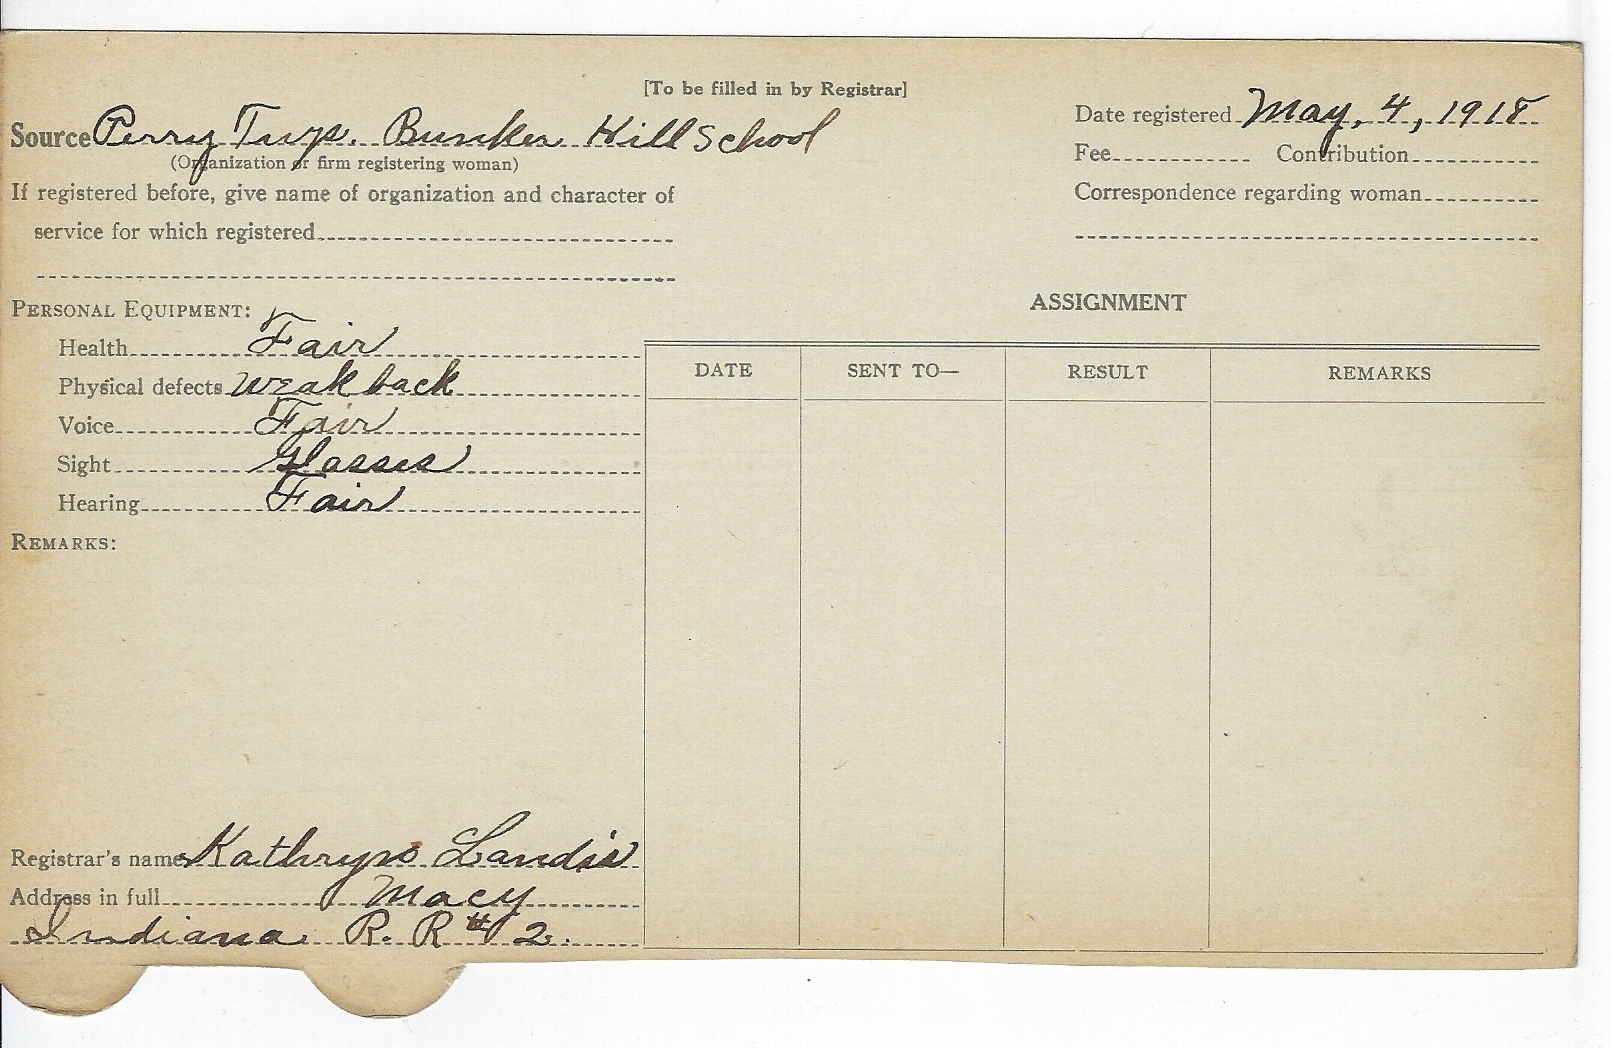 [To be filled in by Registrar]
Source Perry Twp. Bunker Hill School
(Organization or firm registering woman)
If registered before, give name of organization and character of
service for which registered
Date registered May, 4, 1918
Fee Contribution
Correspondence regarding woman
PERSONAL EQUIPMENT:
Health Fair
Physical defects weak back
Voice Fair
Sight Glasses
Hearing Fair
REMARKS:
Registrar's name Kathryn Landis
Address in full Macy
Indiana R. R # 2.
ASSIGNMENT
DATE SENT TO— RESULT REMARKS